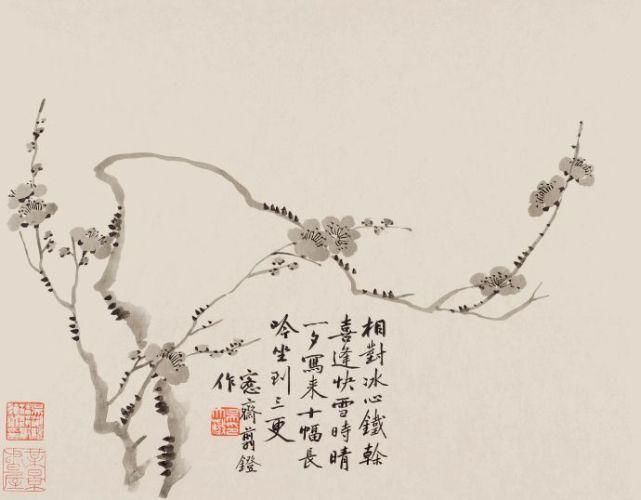 相對冰心鐵榦
喜逢快雪時晴
一夕寫来十幅長
吟坐到三更
愙齋翦鐙
作